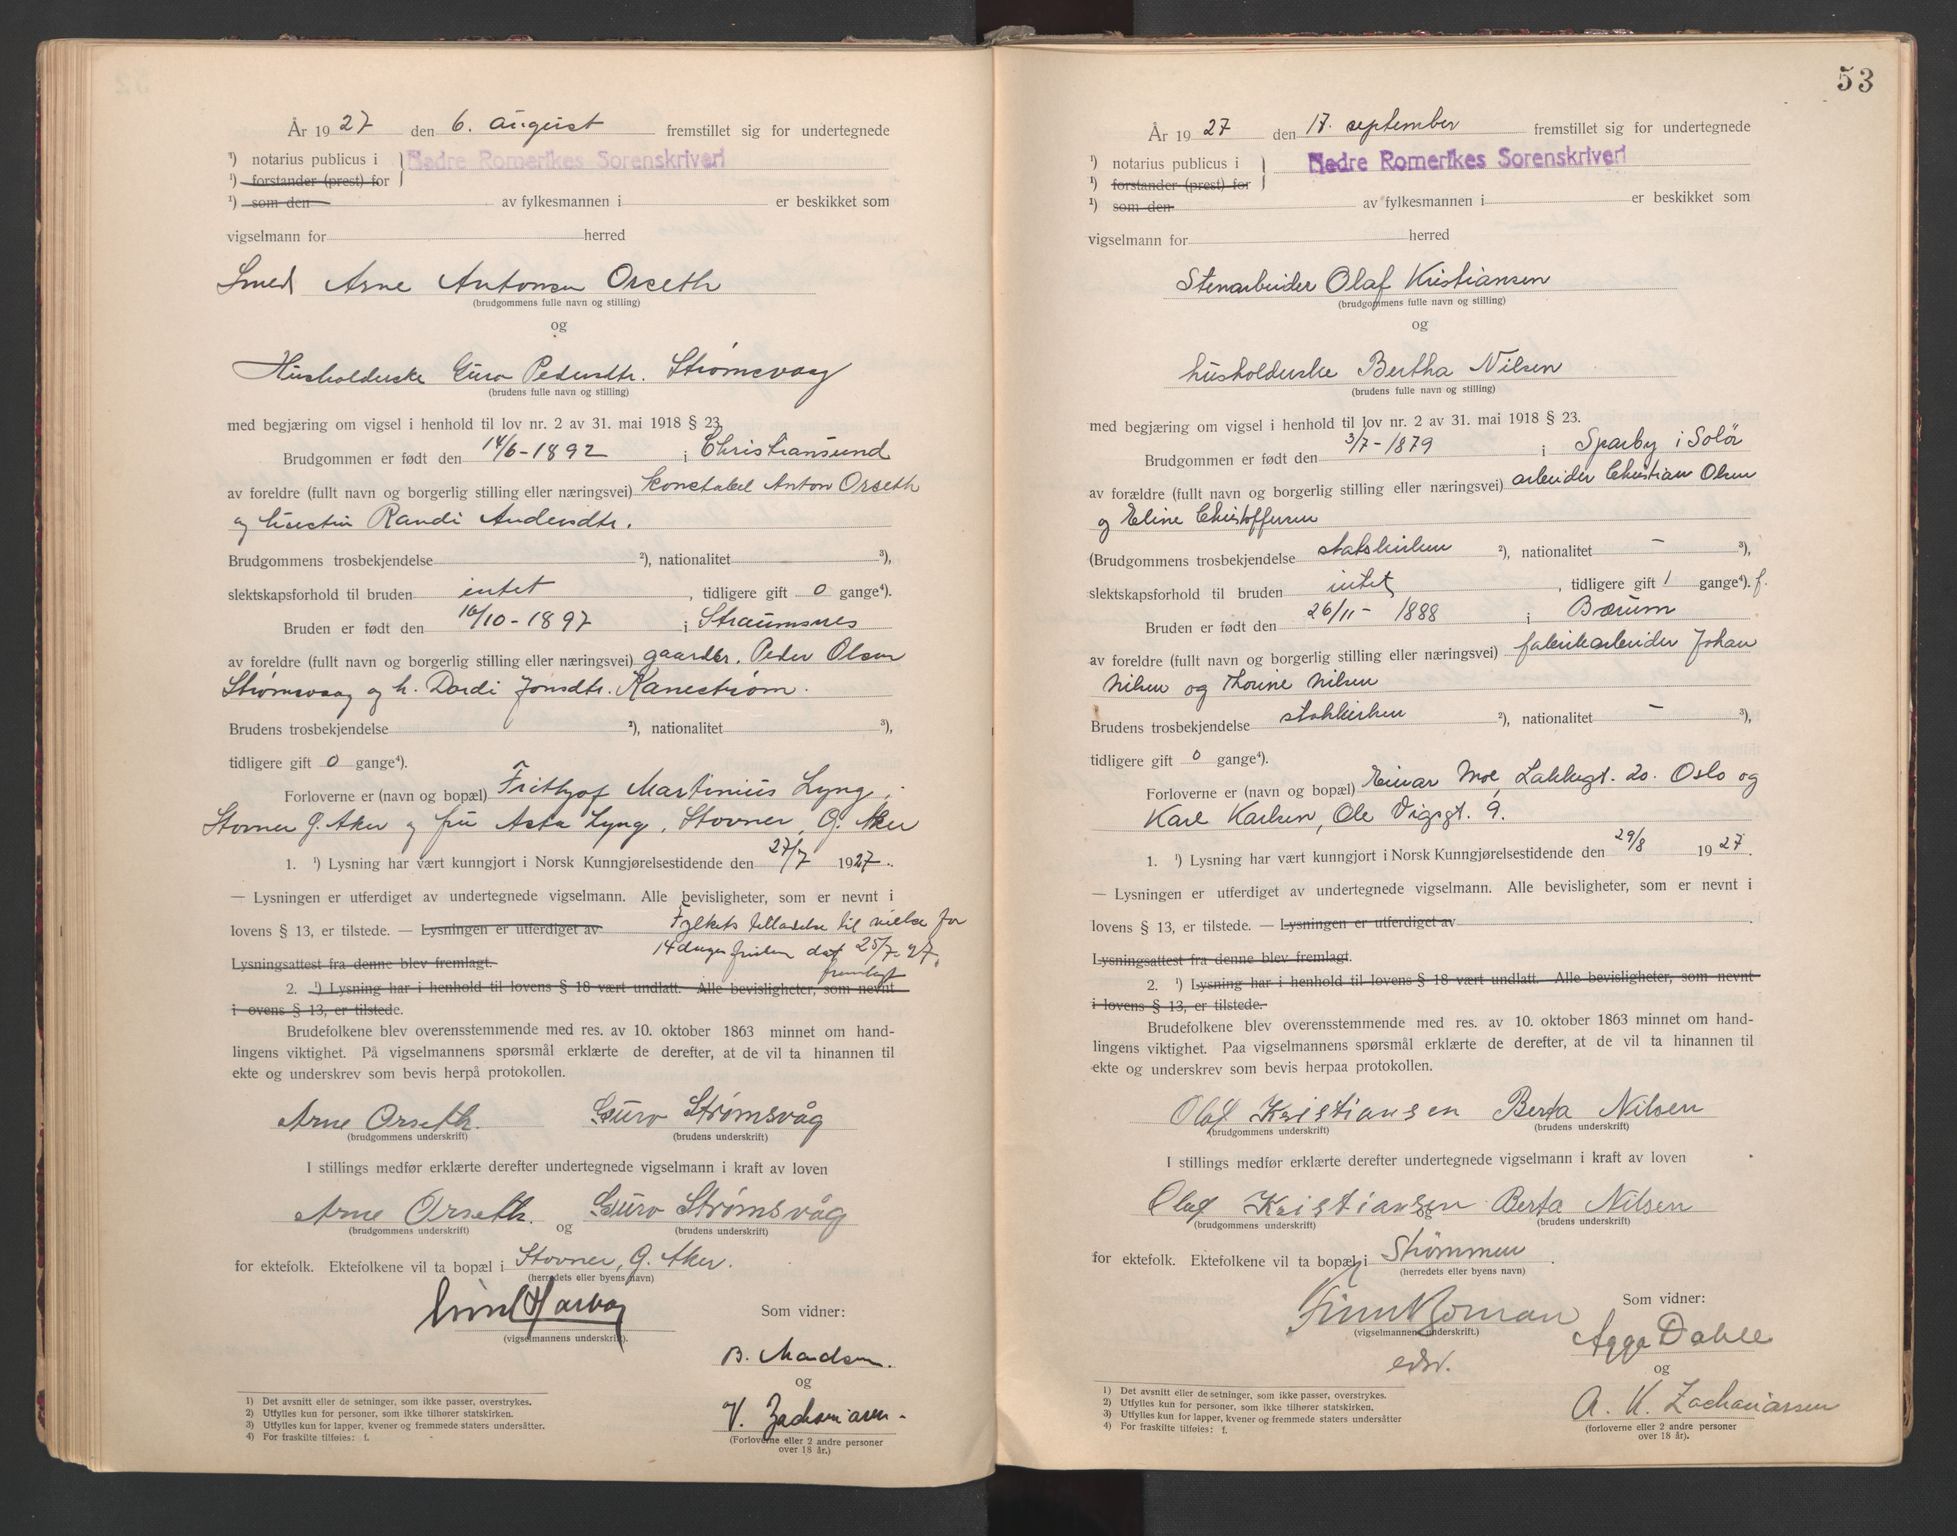 År 1927 den 6. august fremstillet sig for undertegnede
¹) notarius publicus i } Nedre Romerikes Sorenskriveri
¹) forstander (prest) for
¹) som den av fylkesmannen i er beskikket som
vigselmann for herred
Smed Arne Antonsen Orseth
(brudgommens fulle navn og stilling)
og
Husholderske Guro Pedersdtr. Strømsvaag
(brudens fulle navn og stilling)
med begjæring om vigsel i henhold til lov nr. 2 av 31. mai 1918 § 23.
Brudgommen er født den 14/6-1892 i Christiansund
av foreldre (fullt navn og borgerlig stilling eller næringsvei) konstabel Anton Orseth
og hustru Randi Andersdtr.
Brudgommens trosbekjendelse ²), nationalitet ³),
slektskapsforhold til bruden intet, tidligere gift 0 gange⁴).
Bruden er født den 16/10-1897 i Straumsnes
av foreldre (fullt navn og borgerlig stilling eller næringsvei) gaardbr. Peder Olsen
Strømsvaag og h. Dordi Jonsdtr. Kanestrøm.
Brudens trosbekjendelse ²), nationalitet ³),
tidligere gift 0 gange⁴).
Forloverne er (navn og bopæl) Frithjof Martinius Lyng,
Stovner G. Aker og fru Asta Lyng, Stovner, G. Aker
1. ¹) Lysning har vært kunngjort i Norsk Kunngjørelsestidende den 27/7 1927.
— Lysningen er utferdiget av undertegnede vigselmann. Alle bevisligheter, som er nevnt i
lovens § 13, er tilstede. — Lysningen er utferdiget av Fylkets tilladelse til vielse før
Lysningsattest fra denne blev fremlagt. 14 dages fristen dat 25/7-27.
fremlagt
2. ¹) Lysning har i henhold til lovens § 18 vært undlatt. Alle bevisligheter, som nevnt
i ovens § 13, er tilstede.
Brudefolkene blev overensstemmende med res. av 10. oktober 1863 minnet om hand-
lingens viktighet. På vigselmannens spørsmål erklærte de derefter, at de vil ta hinannen til
ekte og underskrev som bevis herpå protokollen.
Arne Orseth. Guro Strømsvåg
(brudgommens underskrift) (brudens underskrift)
I stillings medfør erklærte derefter undertegnede vigselmann i kraft av loven
Arne Orseth. og Guro Strømsvåg
(brudgommens underskrift) (brudens underskrift)
for ektefolk. Ektefolkene vil ta bopæl i Stovner, G. Aker.
(herredets eller byens navn)
(vigselmannens underskrift). Som vidner:
B. Madsen.
og
V. Zachariasen.
(Forloverne eller 2 andre personer
over 18 år.)
1) Det avsnitt eller de setninger, som ikke passer, overstrykes.
2) Utfylles kun for personer, som ikke tilhører statskirken.
3) Utfylles kun for lapper, kvener og fremmede staters undersåtter.
4) For fraskilte tilføies: f.
53
År 1927 den 17. september fremstillet sig for undertegnede
¹) notarius publicus i } Nedre Romerikes Sorenskriveri
¹) forstander (prest) for
¹) som den av fylkesmannen i er beskikket som
vigselmann for herred
Stenarbeider Olaf Kristiansen
(brudgommens fulle navn og stilling)
og
husholderske Bertha Nilsen
(brudens fulle navn og stilling)
med begjæring om vigsel i henhold til lov nr. 2 av 31. mai 1918 § 23.
Brudgommen er født den 3/7-1879 i Sparby i Solør
av forældre (fullt navn og borgerlig stilling eller næringsvei) arbeider Christian Olsen
og Eline Christoffersen
(Brudgommens trosbekjendelse statskirken ²), nationalitet - ³),
slektskapsforhold til bruden intet, tidligere gift 1 gange⁴). f.
Bruden er født den 26/11-1888 i Bærum
av foreldre (fullt navn og borgerlig stilling eller næringsvei) fabrikarbeider Johan
Nilsen og Thorine Nilsen
Brudens trosbekjendelse statskirken ²), nationalitet - ³),
tidligere gift 0 gange⁴).
Forloverne er (navn og bopæl) Einar Moe, Lakkegt. 20. Oslo og
Karl Karlsen, Ole Vigsgt. 9.
1. ¹) Lysning har vært kunngjort i Norsk Kunngjørelsestidende den 29/8 1927.
— Lysningen er utferdiget av undertegnede vigselmann. Alle bevisligheter, som er nevnt i
lovens § 13, er tilstede. — Lysningen er utferdiget av
Lysningsattest fra denne blev fremlagt.
2. ¹) Lysning har i henhold til lovens § 18 vært undlatt. Alle bevisligheter, som nevnt
i lovens § 13, er tilstede.
Brudefolkene blev overensstemmende med res. av 10. oktober 1863 minnet om hand-
lingens viktighet. Paa vigselmannens spørsmål erklærte de derefter, at de vil ta hinannen til
ekte og underskrev som bevis herpaa protokollen.
Olaf Kristiansen Berta Nilsen
(brudgommens underskrift) (brudens underskrift)
I stillings medfør erklærte derefter undertegnede vigselmann i kraft av loven
Olaf Kristiansen og Berta Nilsen
(brudgommens underskrift) (brudens underskrift)
for ektefolk. Ektefolkene vil ta bopæl i Strømmen.
(herredets eller byens navn)
Finn Boman Som vidner:
(vigselmannens underskrift.) Aggo Dahle
edsv. og
A. K. Zachariassen
(forloverne eller 2 andre personer
over 18 år).
1) Det avsnitt eller de setninger, som ikke passer, overstrykes.
2) Utfylles kun for personer, som ikke tilhører statskirken.
3) Utfylles kun for lapper, kvener og fremmede staters undersåtter
4) For fraskilte tilføies: f.